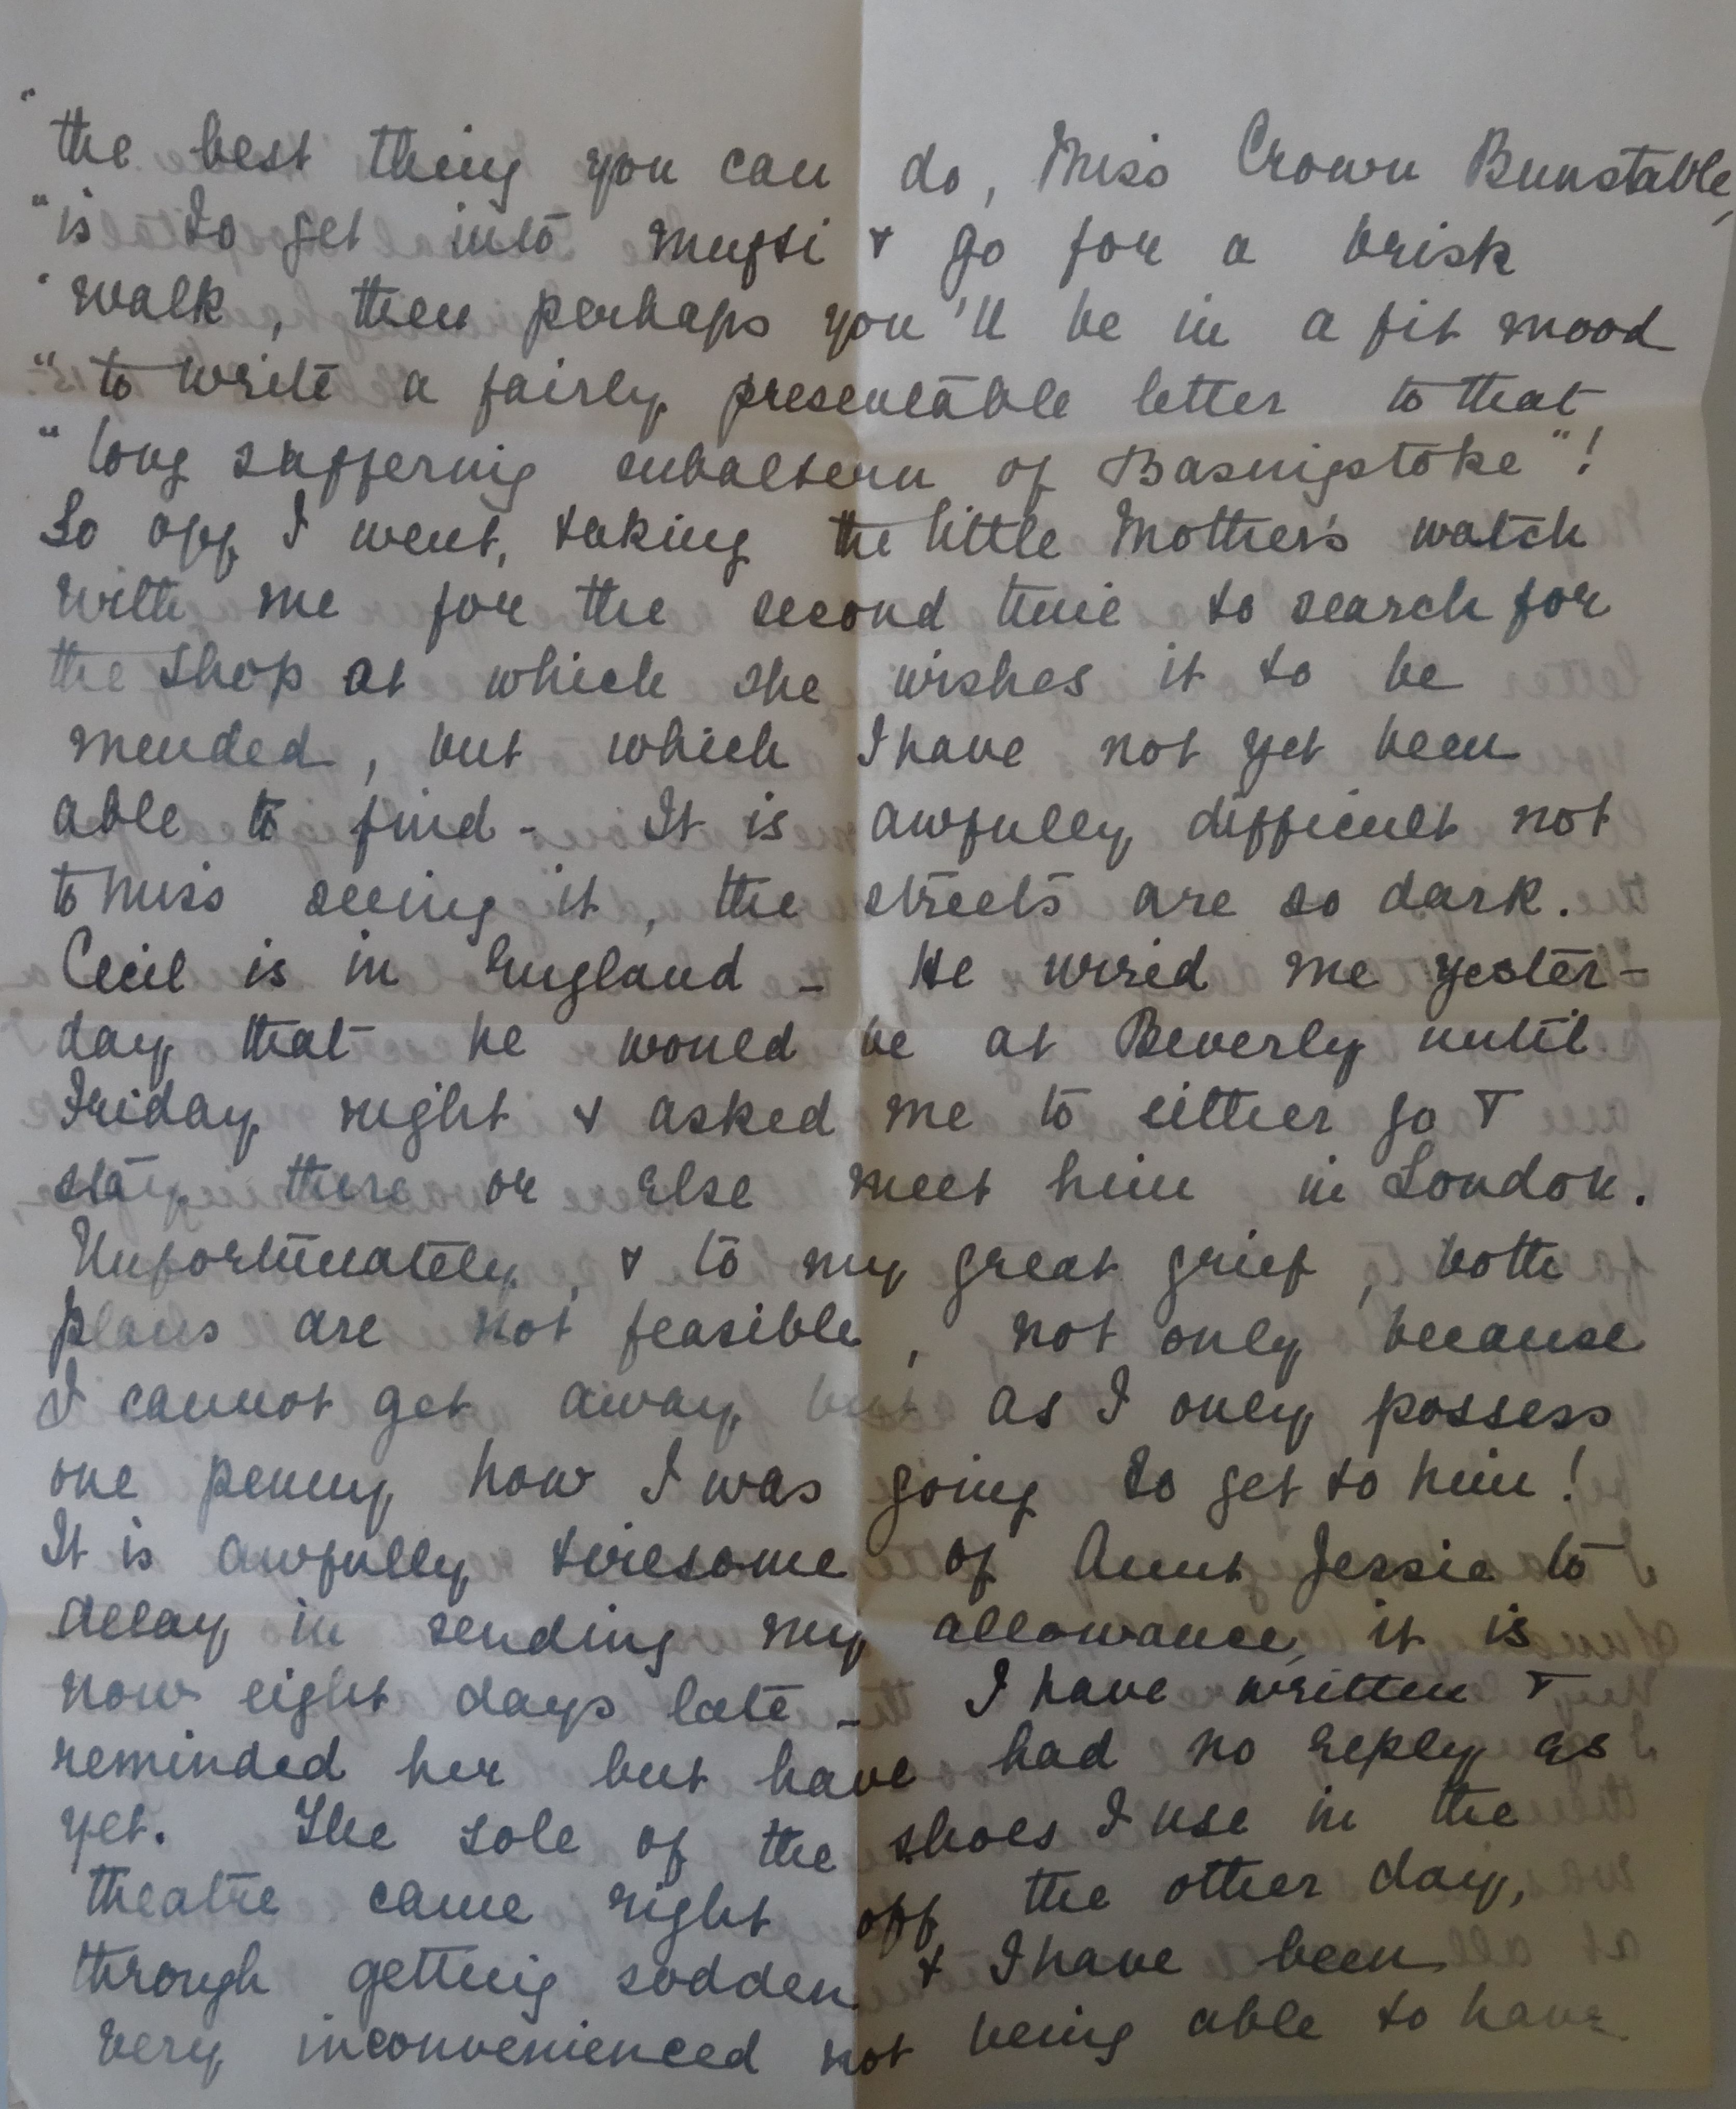 "the best thing you can do, Miss Crown Bunstable,
"is to get into mufti & go for a brisk
"walk, then perhaps you'll be in a fit mood
"to write a fairly presentable letter to that
"long suffering subaltern of Basingstoke"!
So off I went, taking the little Mother's watch
with me for the second time to search for
the shop at which she wishes it to be
mended, but which I have not yet been
able to find - It is awfully difficult not
to miss seeing it, the streets are so dark.
Cecil is in England - He wired me yester-
day that he would be at Beverly until
Friday night & asked me to either go &
stay there or else meet him in London.
Unfortunately, & to my great grief, both
plans are not feasible, not only because
I cannot get away but as I only possess
one penny how I was going to get to him!
It is awfully tiresome of Aunt Jessie to
delay in sending my allowance, it is
now eight days late - I have written &
reminded her but have had no reply as
yet. The sole of the shoes I use in the
theatre came right off the other day,
through getting sodden & I have been
very inconvenienced not being able to have